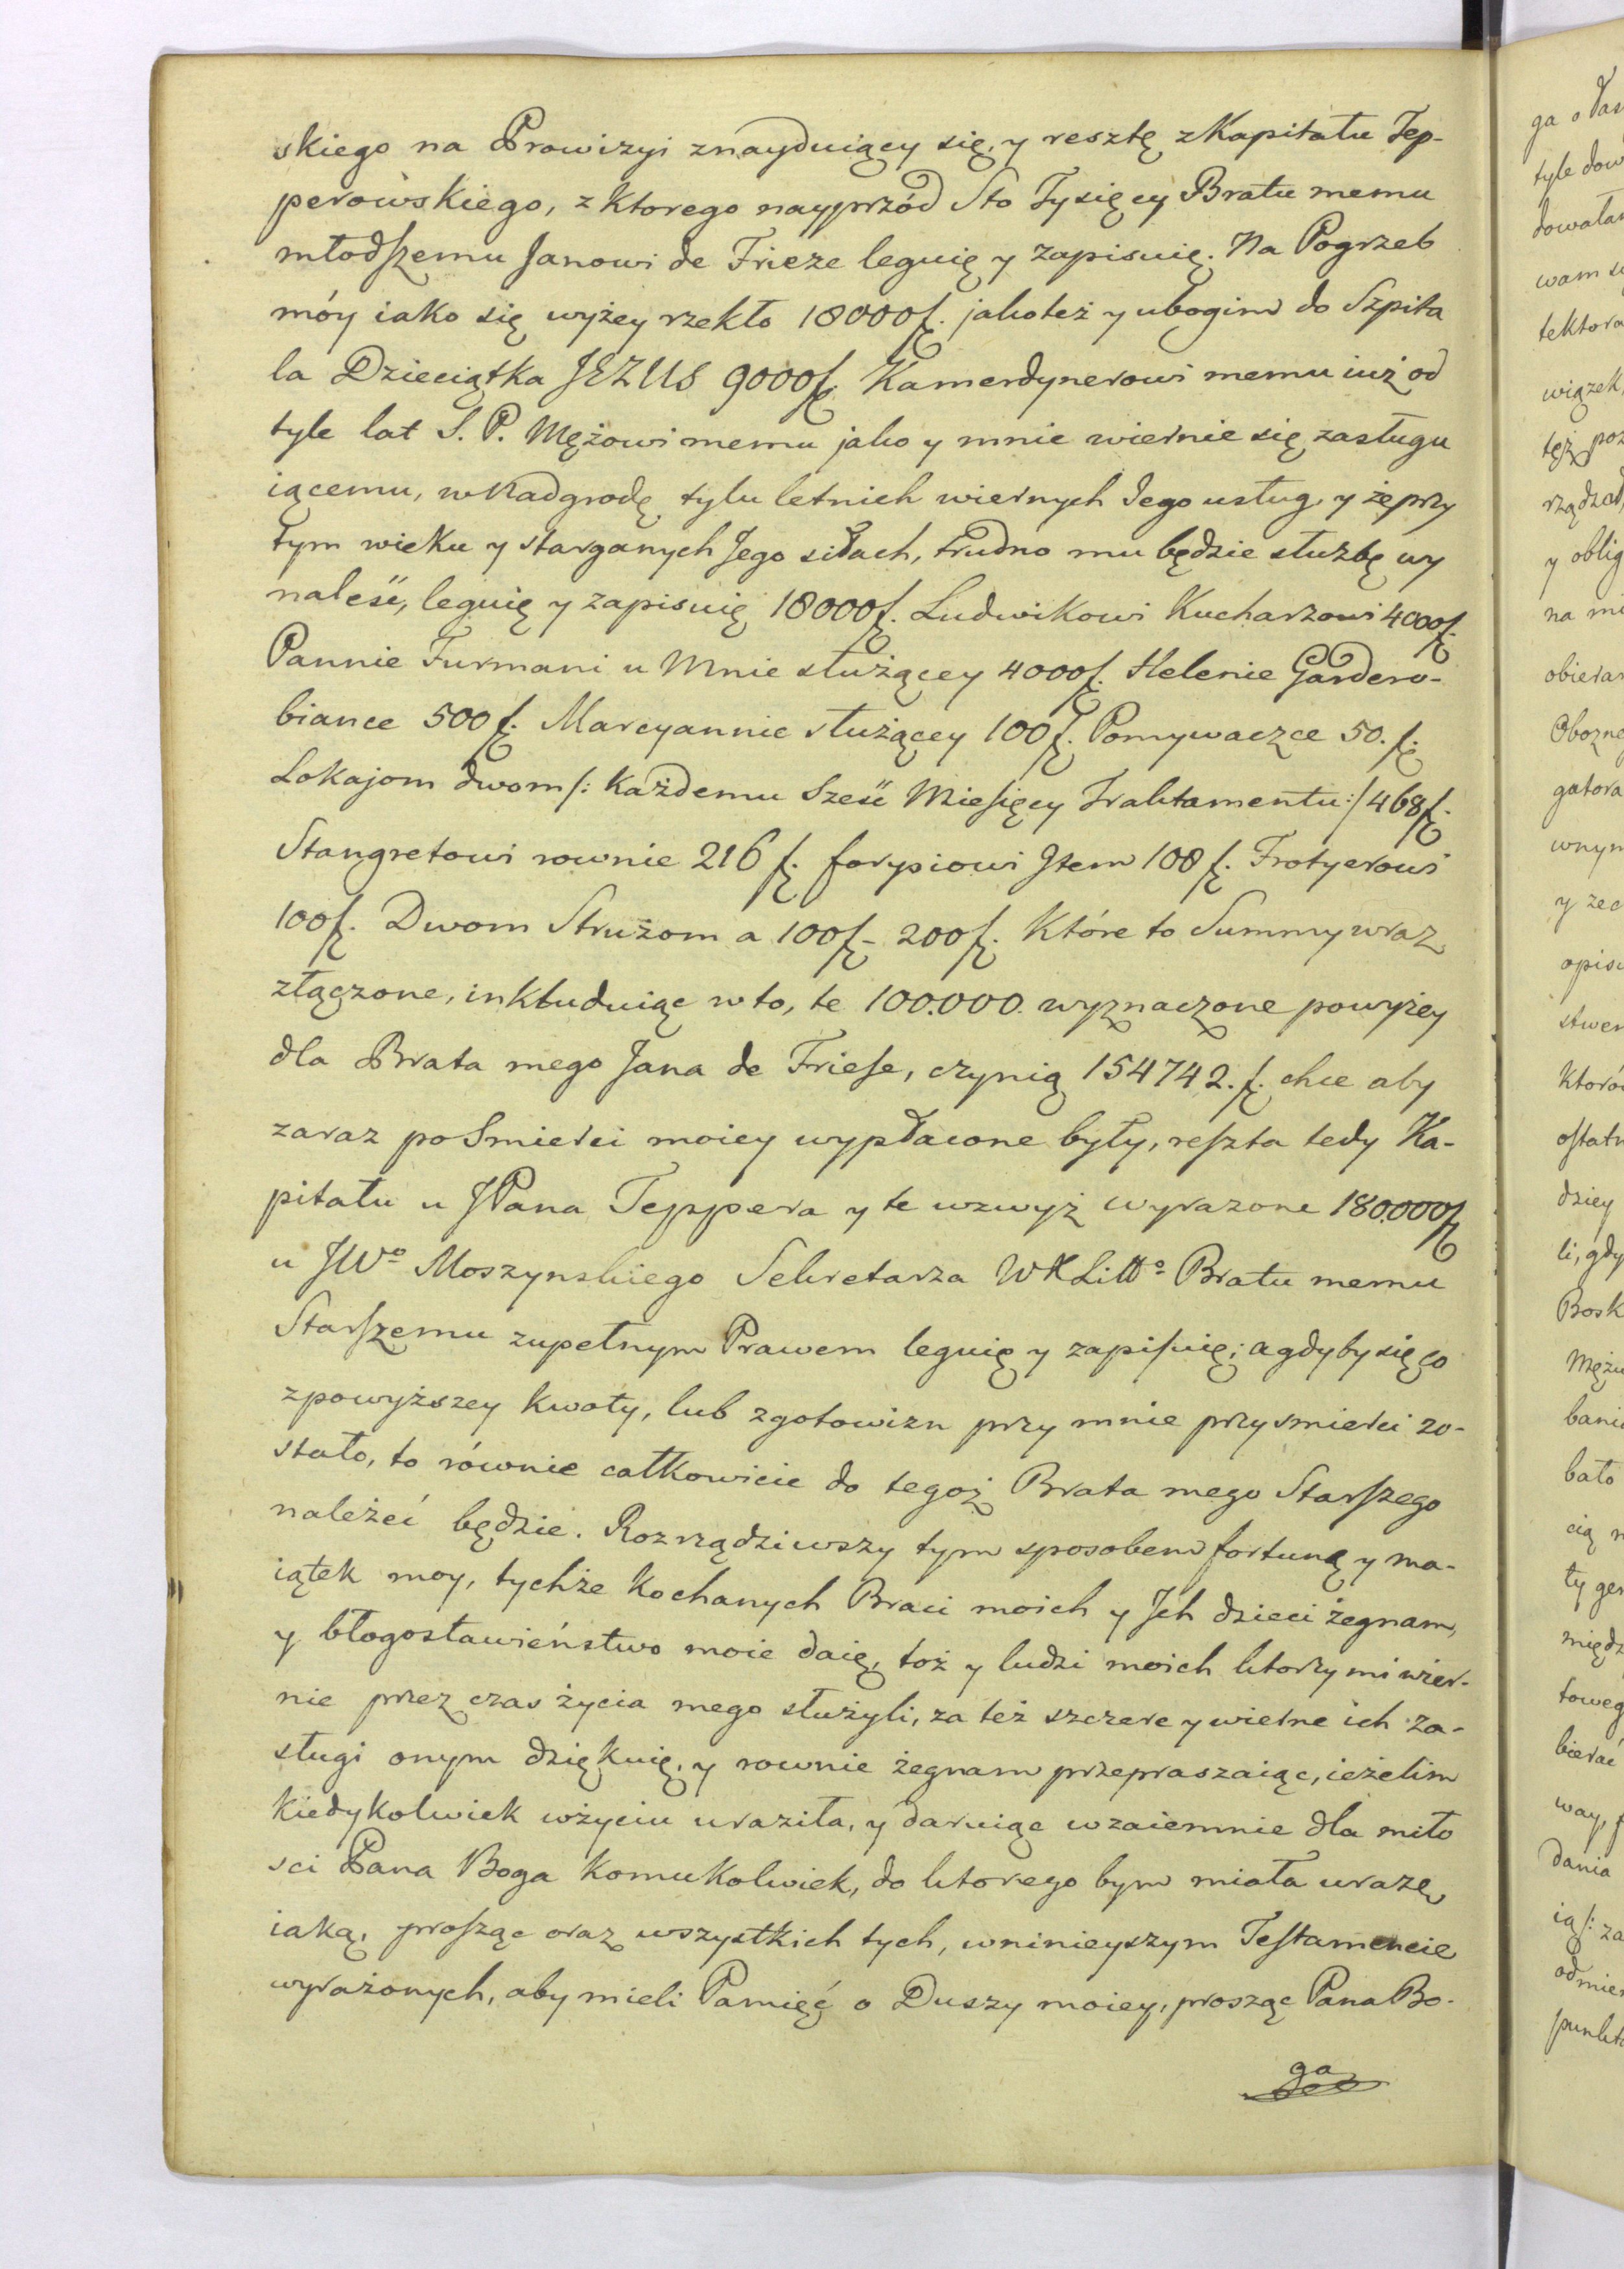 skiego na Prowizyi znayduiący się, y resztę z Kapitału Tep-
perowskiego, z ktorego nayprzód Sto Tysięcy Bratu memu
młodszemu Janowi de Frieze leguię y zapisuię. Na Pogrzeb
móy iako się wyżey rzekło 18000 f. jako też y ubogim do Szpita
la Dzieciątka JEZUS 9000 f. Kamerdynerowi memu iuż od
tyle lat S. P. Mężowi memu jako y mnie wiernie się zasługu
iącemu, w Nadgrodę tylu letnich wiernych Jego usług, y że przy
tym wieku y starganych Jego siłach, trudno mu będzie służbę wy
naleść, leguię y zapisuię 18000 f. Ludwikowi Kucharzowi 4000 f.
Pannie Furmani u Mnie służącey 4000 f. Helenie Gardero-
biance 500 f. Marcyannie służącey 100 f. Pomywaczce 50. f.
Lokajom dwom /: każdemu Sześć Miesięcy Traktamentu :/ 468 f.
Stangretowi rownie 216 f. forysiowi Item 108 f. Frotyerowi
100 f. Dwom Stružom a 100 f - 200 f. Które to Summy wraz
złączone, inkluduiąc w to, te 100.000. wyznaczone powyżey
dla Brata mego Jana de Friese, czynią 154742. f. chce aby
zaraz po Smierci moiey wypłacone były, reszta tedy Ka-
pitału u JPana Teppera y te wzwyż wyrazone 180.000 f
u JWo Moszynskiego Sekretarza WXLitto Bratu memu
Starszemu zupełnym Prawem leguię y zapisuię; a gdyby się co
z powyższey kwoty, lub z gotowizn przy mnie przy smierci zo-
stało, to równie całkowicie do tegoż Brata mego Starszego
należeć będzie. Rozrządziwszy tym sposobem fortuną y ma-
iątek moy, tychże Kochanych Braci moich y Jch dzieci żegnam,
y błogosławieństwo moie daię, toż y ludzi moich ktorzy mi wier-
nie przez czas życia mego służyli, za też szczere y wierne ich za-
sługi onym dziękuię, y rownie żegnam przepraszaiąc, ieżelim
kiedykolwiek w życiu uraziła, y daruiąc wzaiemnie dla miło
sci Pana Boga komukolwiek, do ktorego bym miała urazę
iaką, prosząc oraz wszystkich tych, w ninieyszym Testamencie
wyrażonych, aby mieli Pamięć o Duszy moiey, prosząc Pana Bo-
ga